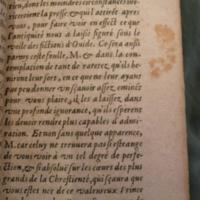 bien, dont les moindres circonstances int-
terissent la presse, & qu'il attirẻ apres
vous, pour faire voir en effect ce que
l'antiquité nous a laissé figuré sous le
voile des fictions d'Ouide. Ce sera ainsi
parmy ceste foulle, M. & dans la con-
templation de tant de raretez, qu'ils es-
beront leur sort, en ce que n'en ayant
pas peu donner vn sçauoir assez, eminẽt
pour vous plaire, il les a laissez dans
vne profonde ignorance, qu'ils esperent
les deuoir rendre plus capables d'admi-
ration. Et non sans quelque apparence,
M. car celuy ne trouuera pas si estrange
de vous voir d'vn tel degré de perfe-
ction, & si absolu sur les cœurs des plus
grands de la Chrestienté, qui sçaura que
vous estes nee de ce valeureux Prince